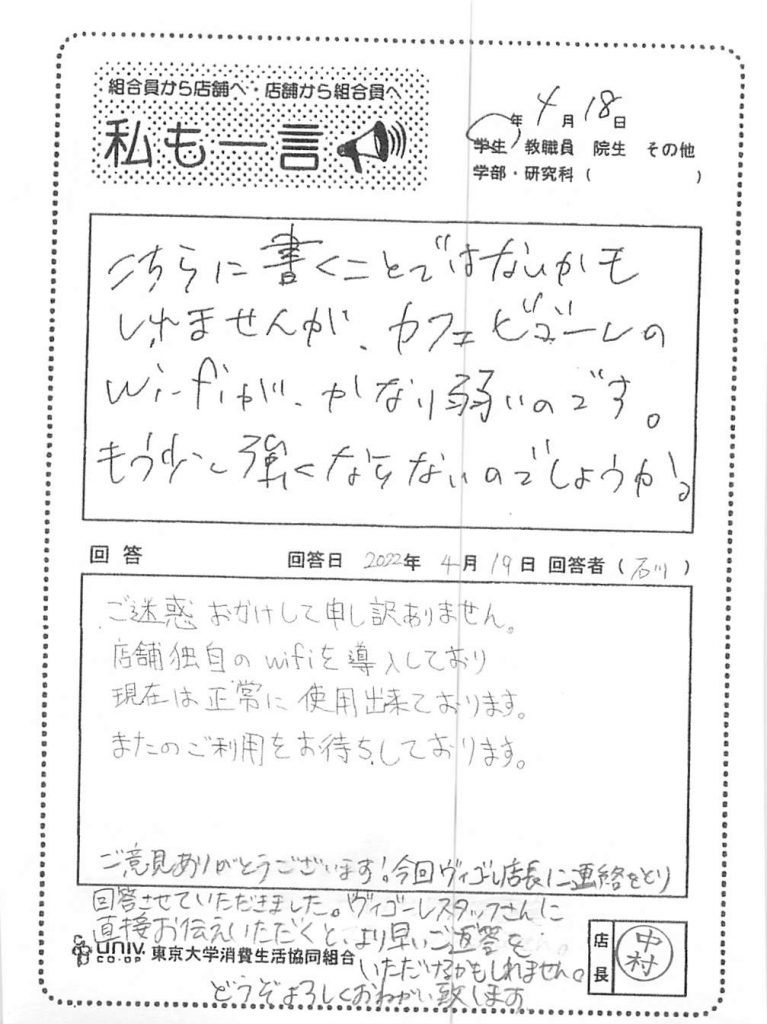 組合員から店舗へ・店舗から組合員へ
私も一言
年 4月18日
学生 教職員 院生 その他
学部・研究科（　　　）
こちらに書くことではないかも
しれませんが、カフェ ビゴーレの
Wi-fiが、かなり弱いのです。
もう少し強くならないのでしょうか。
回答 回答日 2022年 4月19日 回答者（石川）
ご迷惑おかけして申し訳ありません。
店舗独自のwifiを導入しており
現在は正常に使用出来ております。
またのご利用をお待ちしております。
ご意見ありがとうございます!今回ヴィゴレ店長に連絡をとり
回答させていただきました。ヴィゴーレスタッフさんに
直接お伝えいただくと、より早いご返答を
いただけるかもしれません。
どうぞよろしくおねがい致します
UNIV. CO-OP 東京大学消費生活協同組合
店長 中村